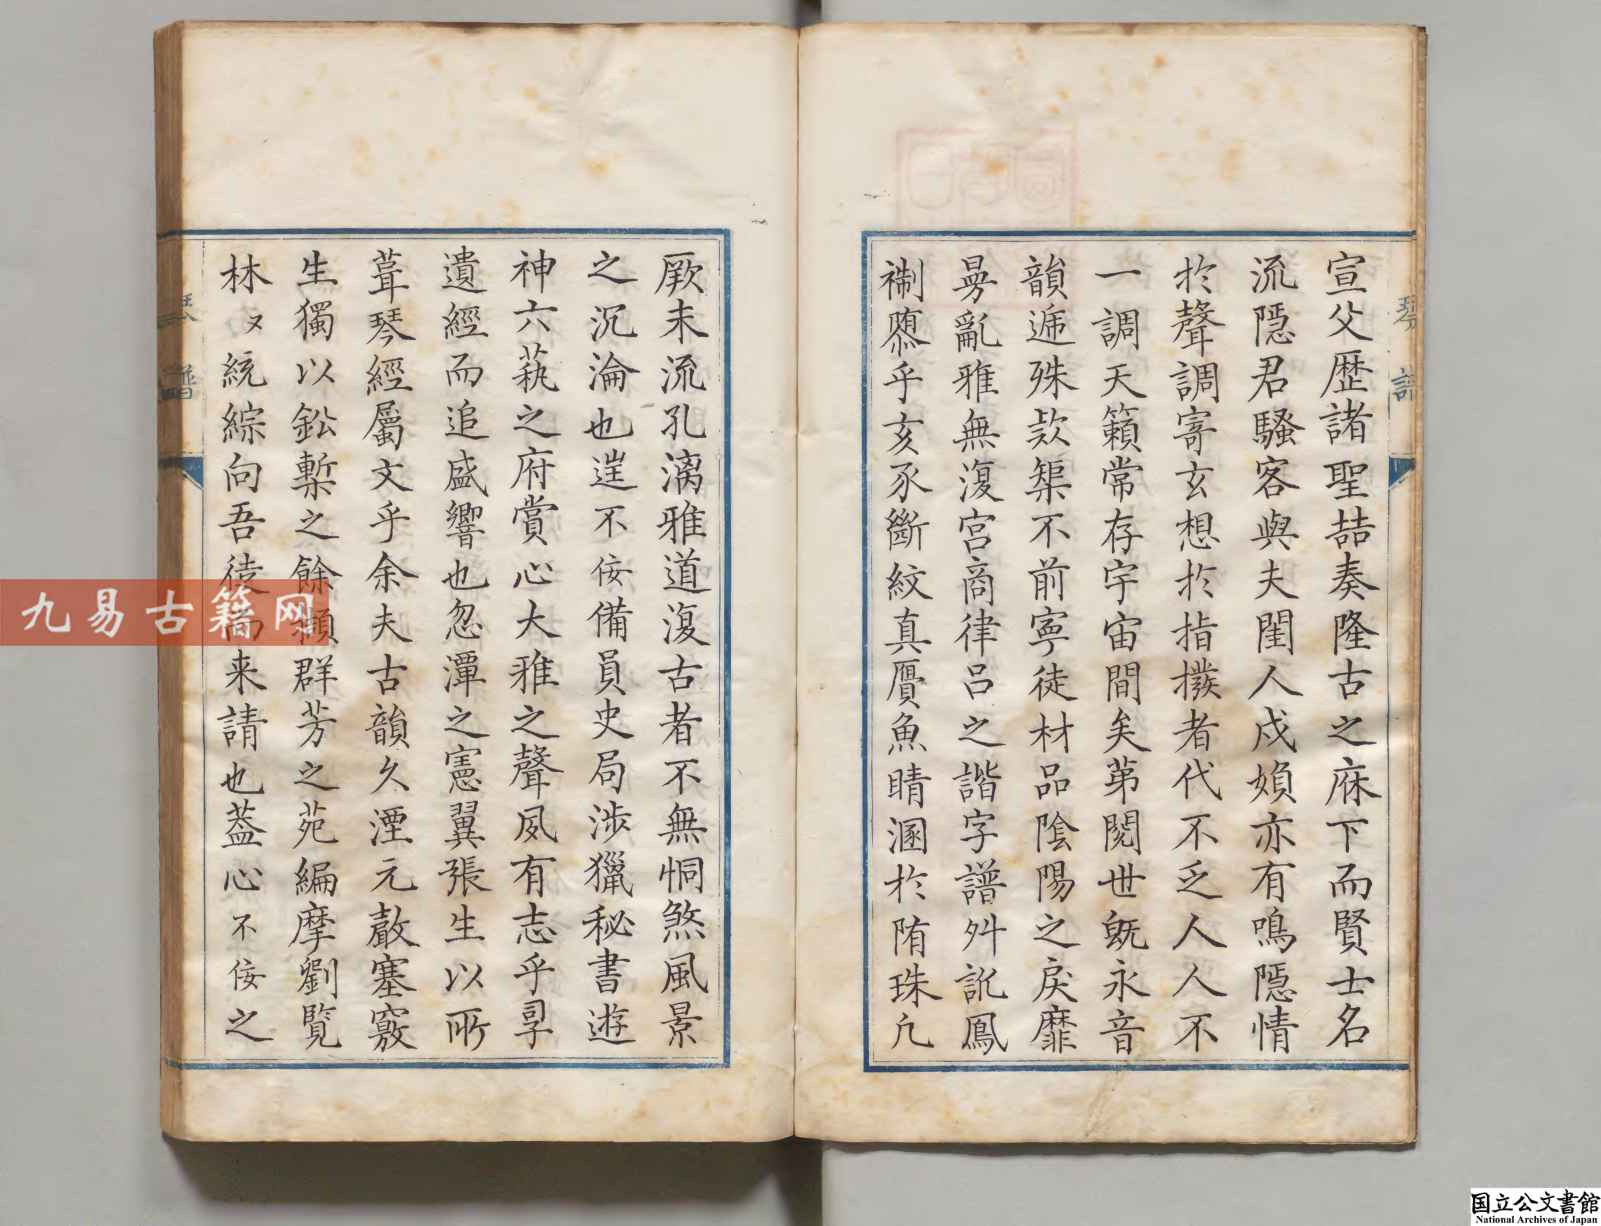 宣父歷諸聖喆奏隆古之庥下而賢士名
流隱君騷客與夫閨人戍媍亦有鳴隱情
於聲調寄玄想於指撥者代不乏人人不
一調天籟常存宇宙間矣苐閱世旣永音
韻遞殊欵榘不前寧徒材品陰陽之戾靡
曼亂雅無復宮商律呂之諧字譜舛訛鳳
制隳乎亥豕斷紋真贋魚睛溷於隋珠凢
厥末流孔漓雅道復古者不無恫煞風景
之沉淪也逞不佞備員史局涉獵秘書遊
神六蓺之府賞心大雅之聲夙有志乎
遺經而追盛響也忽潭之憲翼張生以所
葺琴經屬文乎余夫古韻久湮元瞉塞竅
生獨以鈆槧之餘瀕群芳之苑編摩劉覽
林〻統綜向吾徒而来請也葢心不佞之
琴譜
琴譜
九易古籍网
国立公文書館
National Archives of Japan